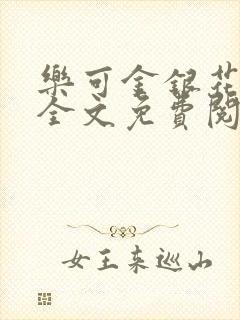 樂可金銀花
全文免費閱
女王来巡山